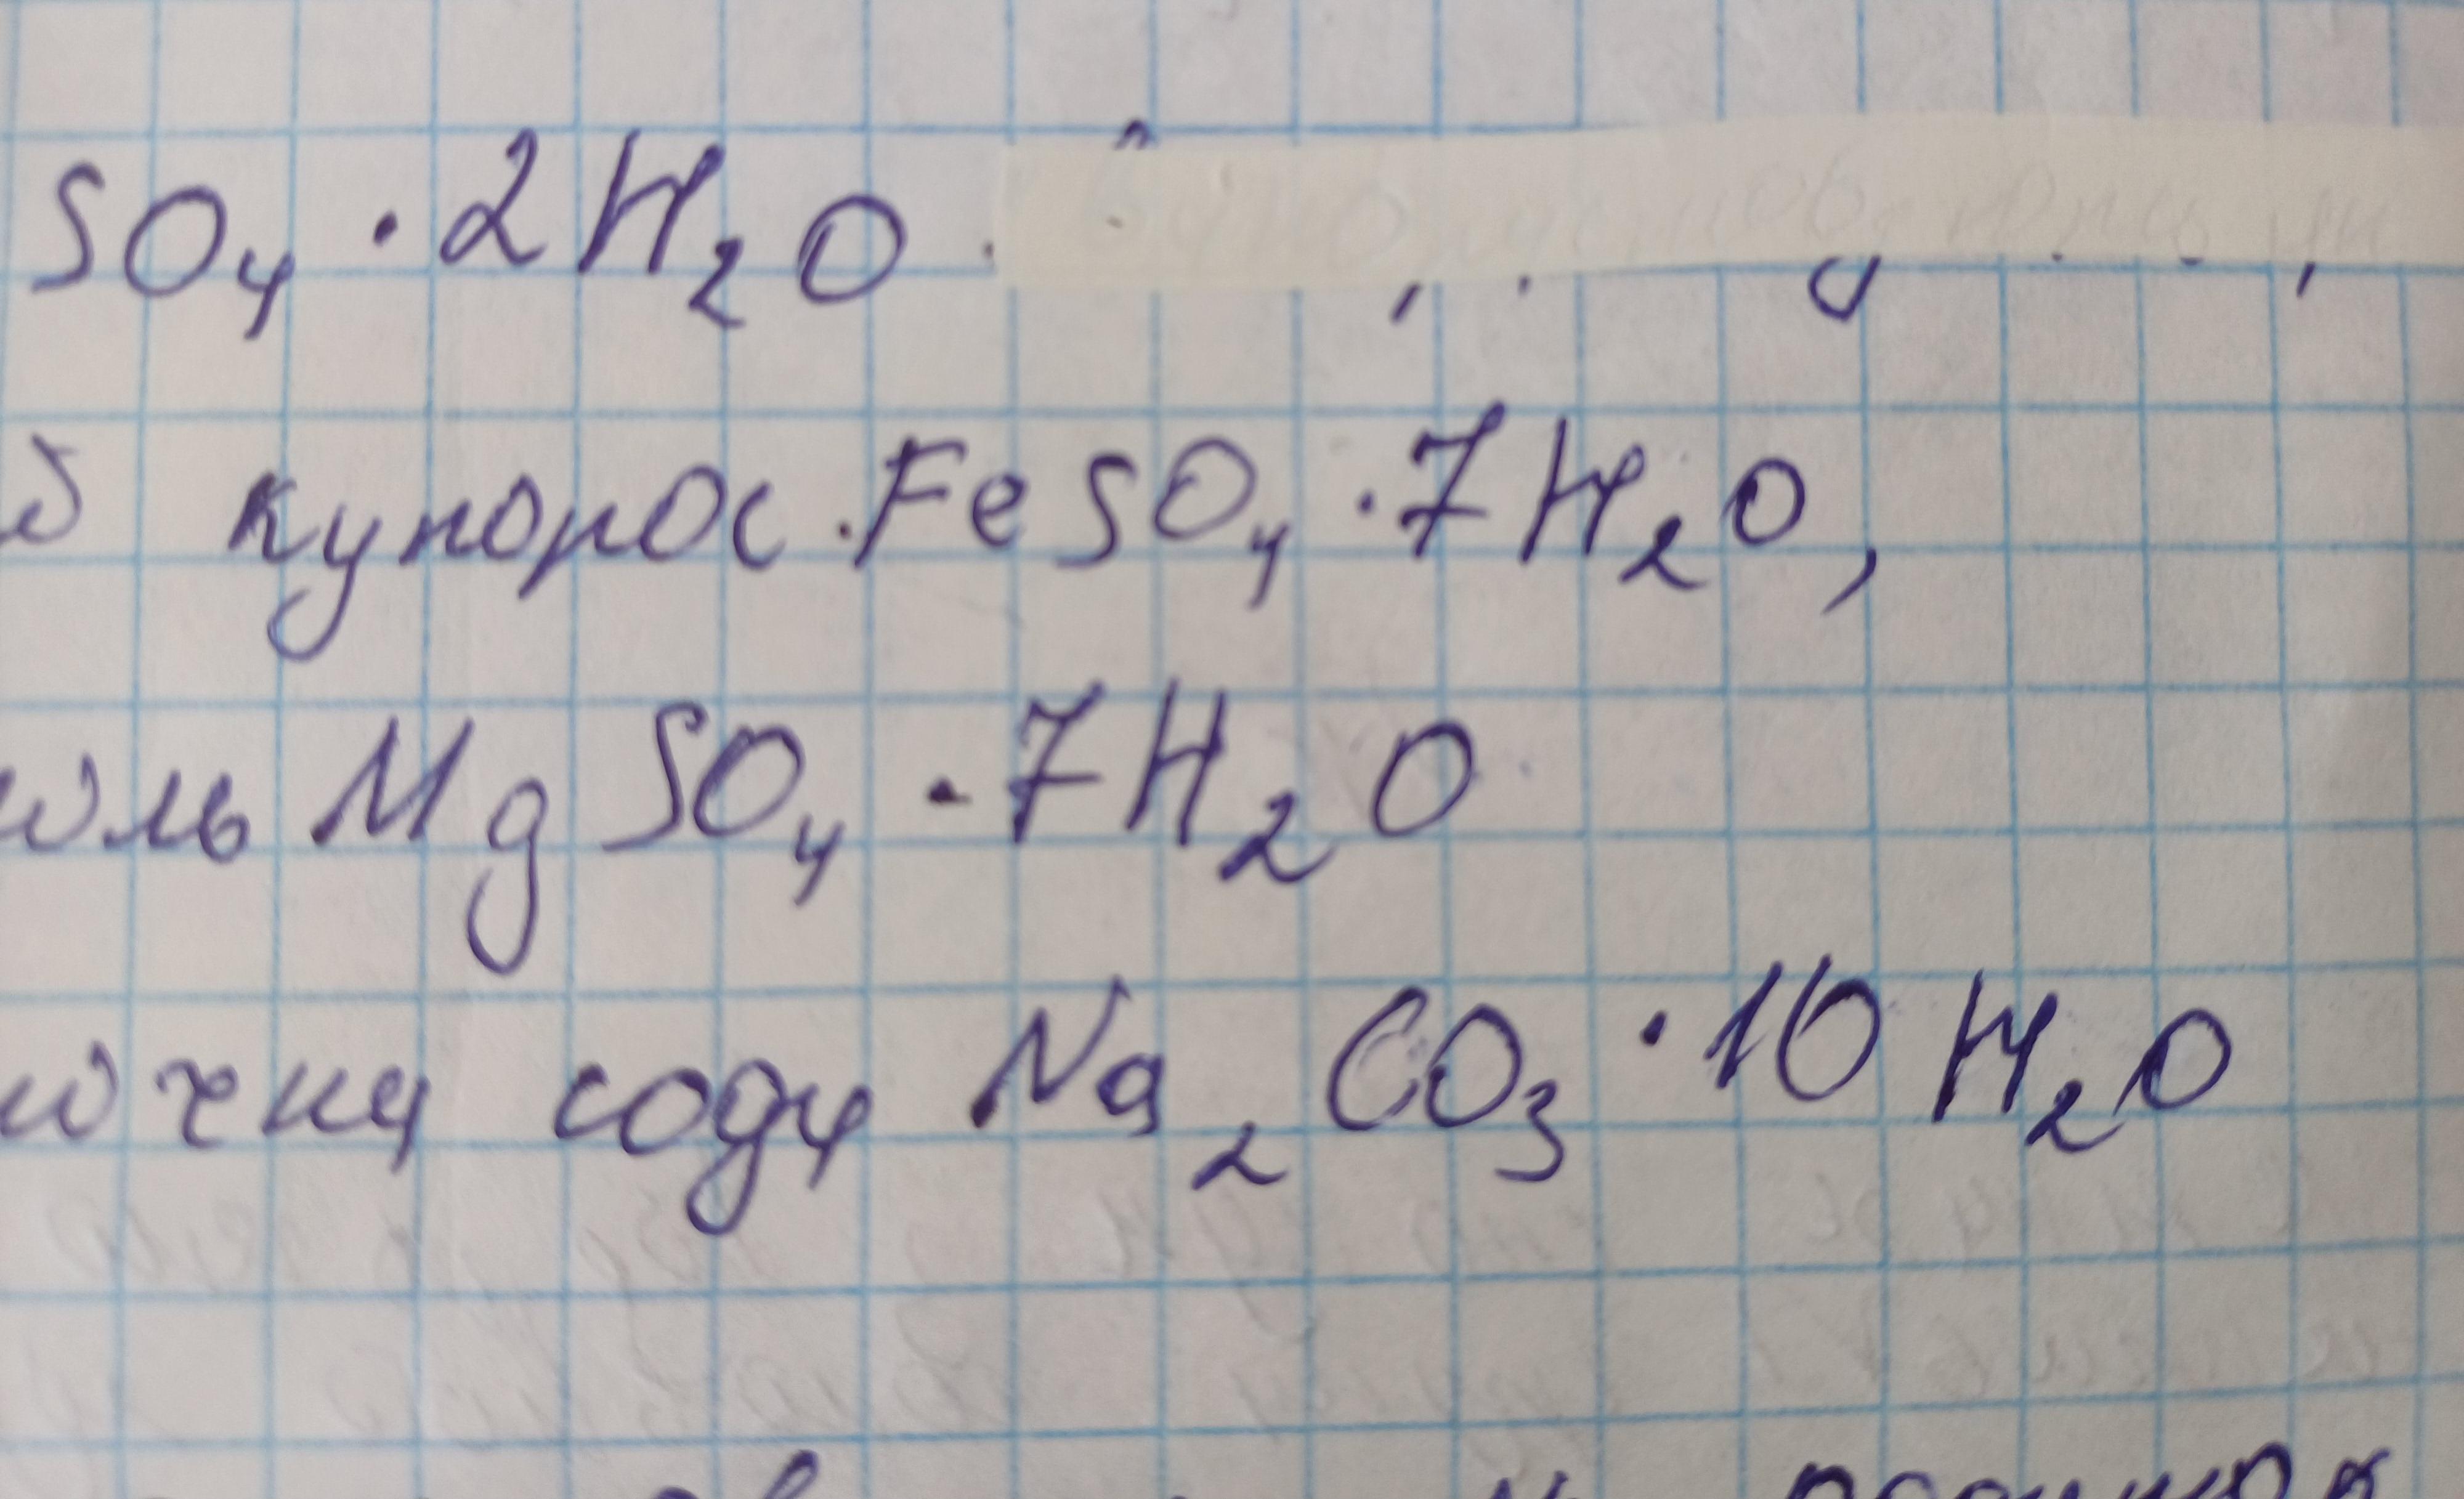 SO₄ · 2H₂O
й купорос. FeSO₄ · 7H₂O,
оль MgSO₄ · 7H₂O
очну соду Na₂CO₃ · 10H₂O